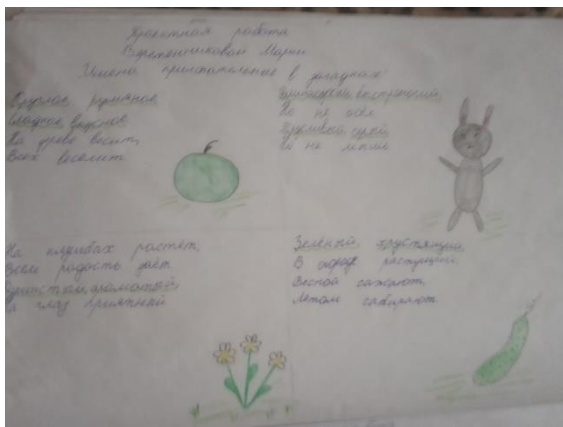 Проектная работа
Веретенниковой Марии
Имена прилагательные в загадках
Круглое, румяное
Сладкое, вкусное
На древе висит,
Всех веселит
Но не осёл
Но не
На клумбах растёт,
Всем радость даёт
глаз приятный
Зелёный, хрустящий
В огороде растущий.
Весной сажают,
Летом собирают